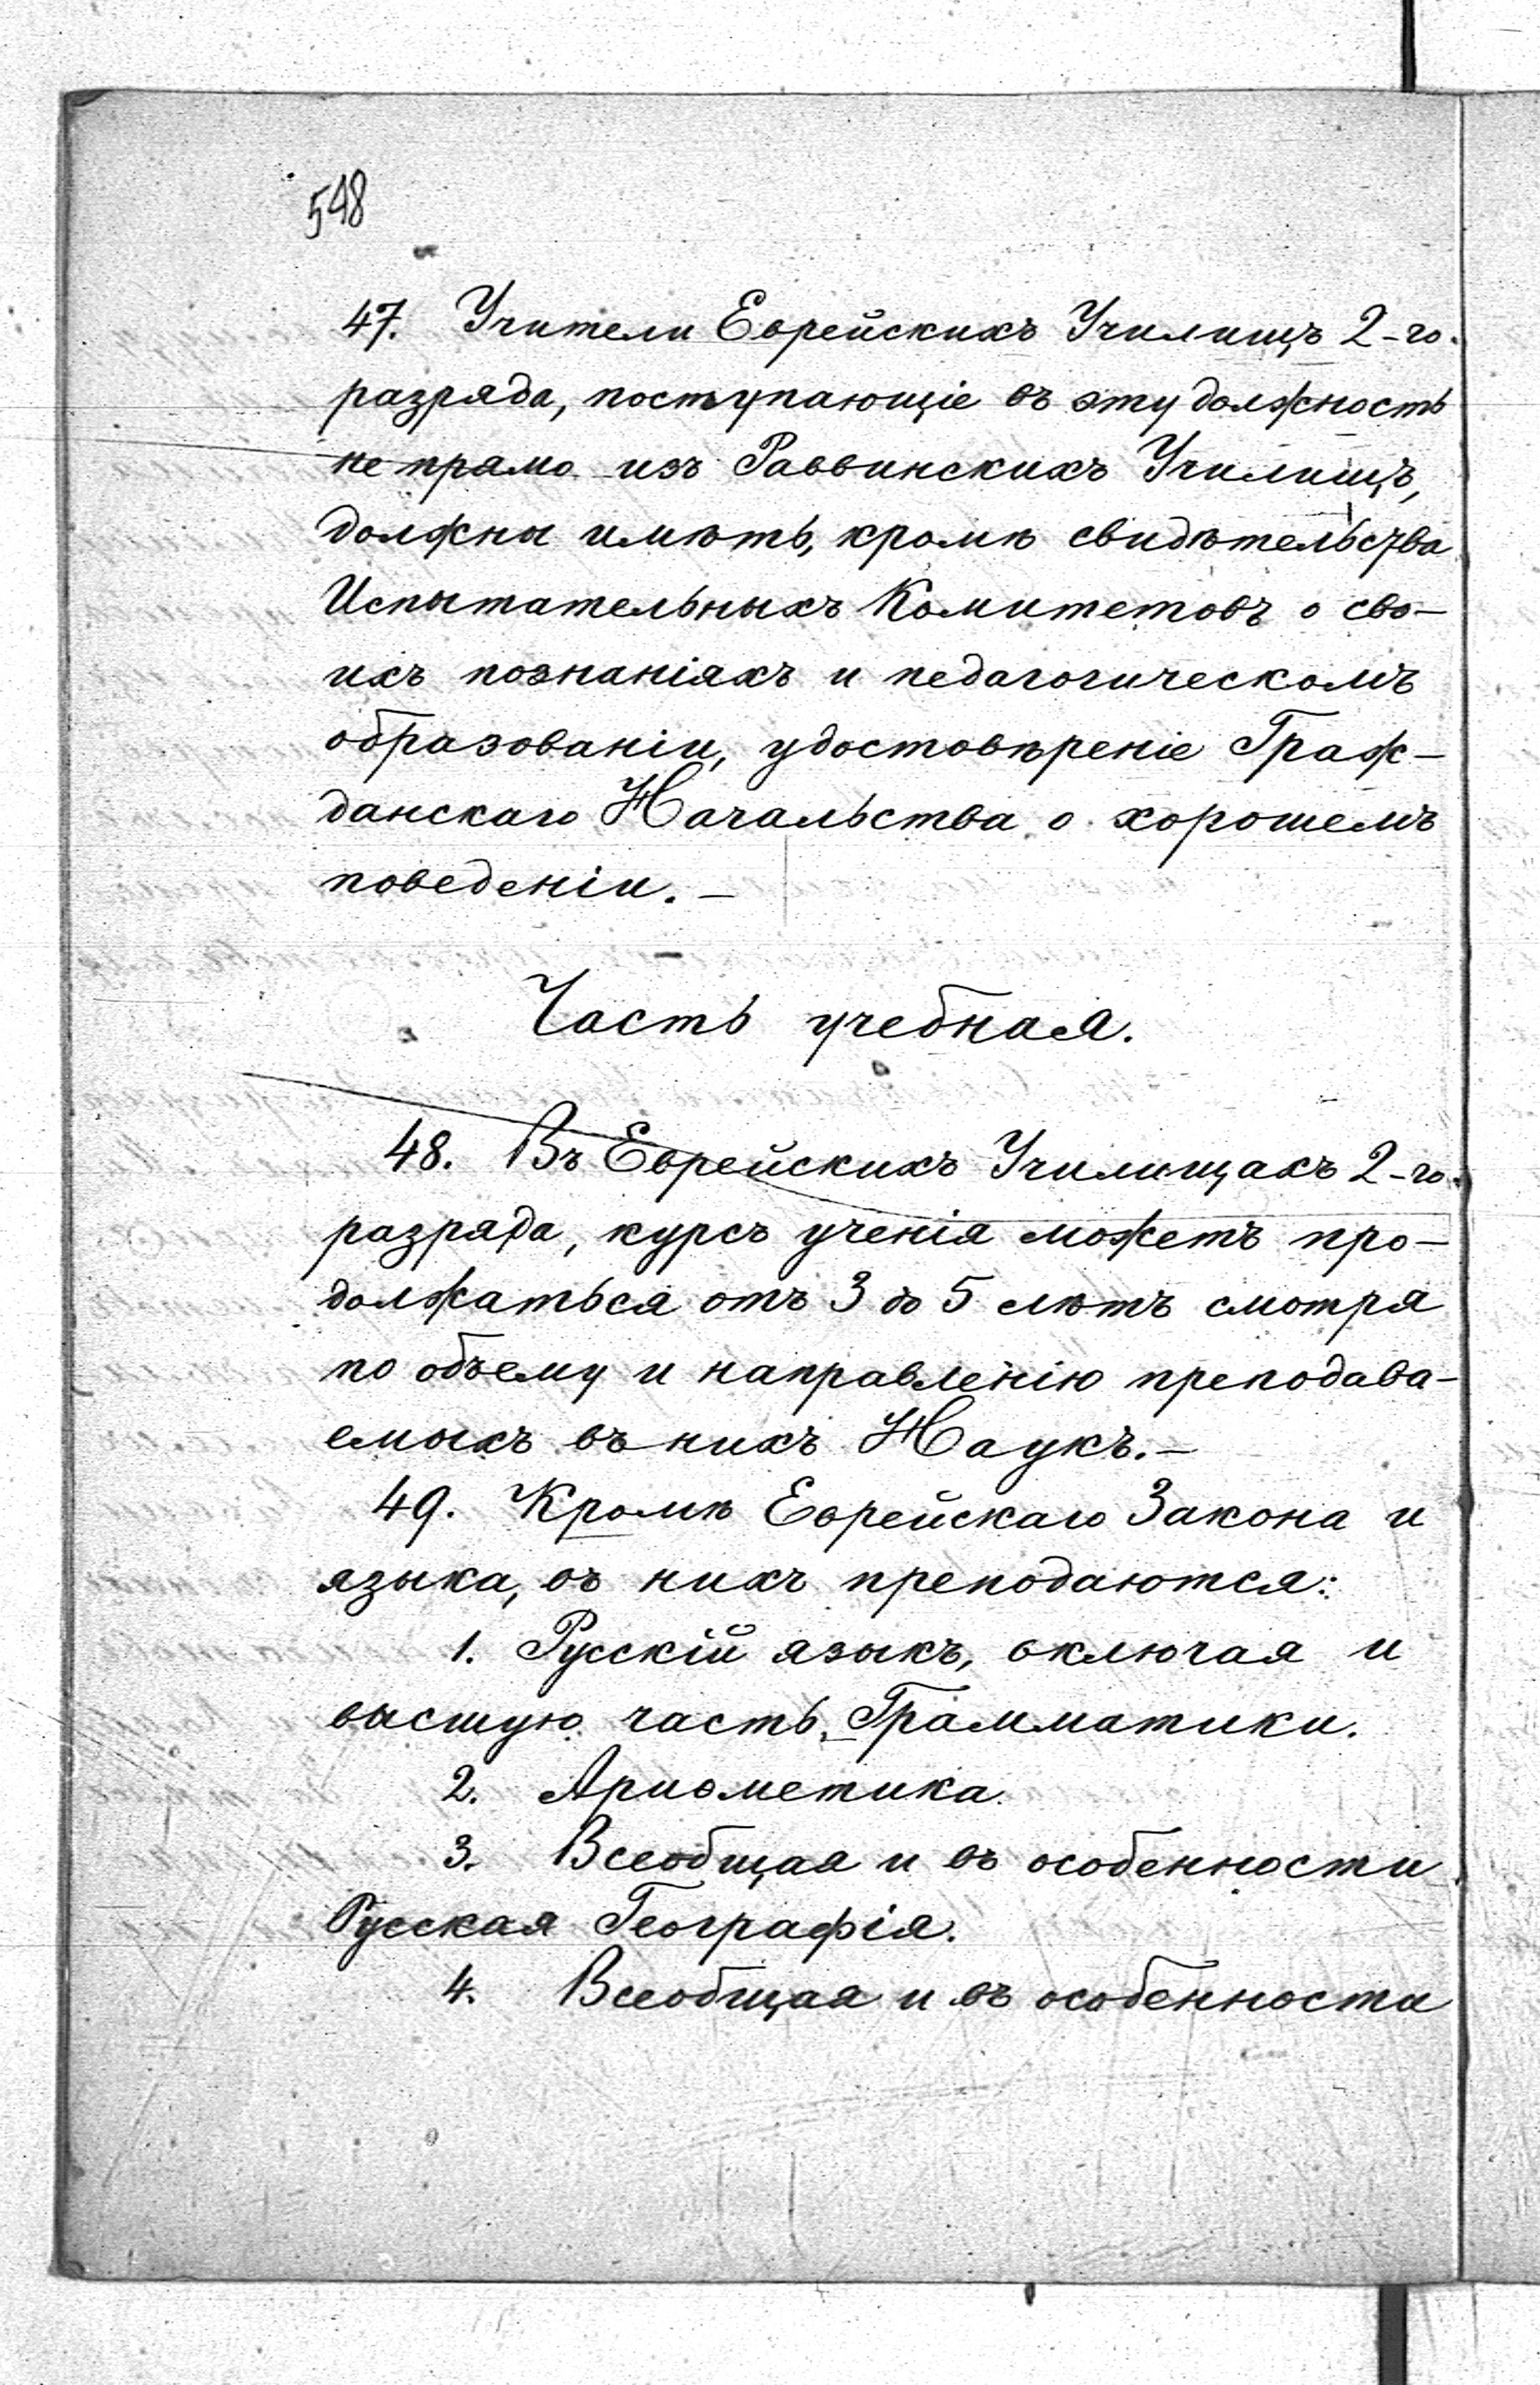 548
47. Учители Еврейскихъ Училищъ 2-го.
разряда, поступающіе въ эту должность
не прямо изъ Раввинскихъ Училищъ,
должны имѣть, кромѣ свидѣтельства
Испытательныхъ Комитетовъ о сво-
ихъ познаніяхъ и педагогическомъ
образованіи, удостовѣреніе Граж-
данскаго Начальства о хорошемъ
поведеніи. –
Часть учебная.
48. Въ Еврейскихъ Училищахъ 2-го.
разряда, курсъ ученія можетъ про-
должаться отъ 3 до 5 лѣтъ смотря
по объему и направленію преподава-
емыхъ въ нихъ Наукъ. –
49. Кромѣ Еврейскаго Закона и
языка, въ нихъ преподаются:
1. Русскій языкъ, включая и
высшую часть Грамматики.
2. Ариѳметика.
3. Всеобщая и въ особенности
Русская Географія.
4. Всеобщая и въ особенности